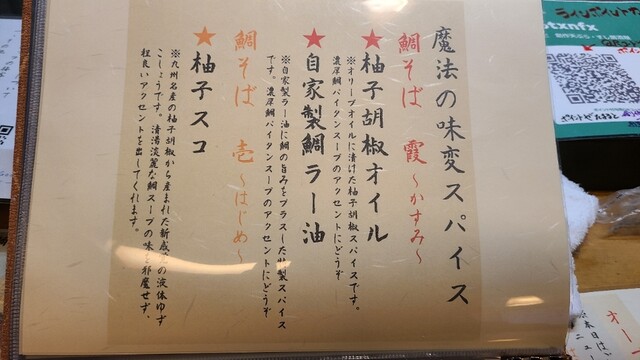 魔法の味変スパイス
鯛そば 霞 ～かすみ～
★柚子胡椒オイル
※オリーブオイルに漬けた柚子胡椒スパイスです。
濃厚鯛パイタンスープのアクセントにどうぞ
★自家製鯛ラー油
※自家製ラー油に鯛の旨みをプラスした 製スパイス
です。濃厚鯛パイタンスープのアクセントにどうぞ
鯛そば 壱 ～はじめ～
★柚子スコ
※九州名産の柚子胡椒から産まれた新感 の液体ゆず
こしょうです。清湯淡麗な鯛スープの味 邪魔せず、
程良いアクセントを出してくれます。
txnfx